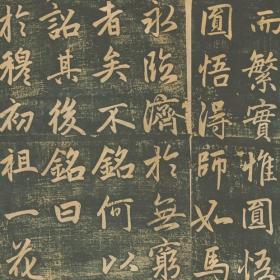 而繁實惟圓悟
圓悟得師如馬
永臨濟於無窮
者矣不銘何以
詔其後銘曰
於穆初祖一花